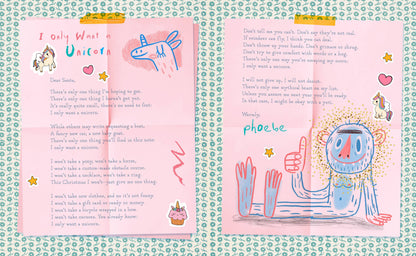 I Only Want a
Unicorn
Dear Santa,
There's only one thing I'm hoping to get.
There's only one thing I haven't got yet.
It's really quite small, there's no need to fret:
I only want a unicorn.
While others may write requesting a boat,
A fancy new car, a new
There's only one thing you'll find in this note
I only want a unicorn.
I won't take a pony, won't take a horse,
I won't take a custom-made obstacle course.
I won't take a necklace, won't take a ring.
This Christmas I won't just give me one thing.
I won't take new clothes, and no it's not funny.
I won't take a gift card or ready or money.
I won't take a bicycle wrapped in a bow.
I won't take excuses. You already know:
I only want a unicorn.
Don't tell me you can't. Don't say they're not real.
If reindeer can fly, I think you can deal.
Don't throw up your hands. Don't grimace or shrug.
Don't try to give comfort with words or a hug.
There's only one way you're escaping my scorn:
I only want a unicorn.
I will not give up. I will not desist.
There's only one mythical beast on my list.
Unless you cannot so meet your
In that case, I might be okay with a yeti.
Warmly,
phoebe